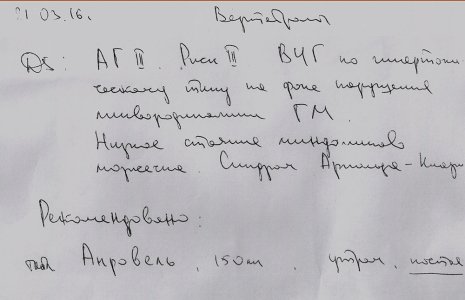 21.03.16. Вертебролог
Ds: АГ II. Риск III ВЧГ по гипертони
ческому типу на фоне нарушения
ликвородинамики ГМ.
Низкое стояние миндаликов
мозжечка. Синдром Арнольда-Киари
Рекомендовано:
таб. Апровель, 150 мг, утром,